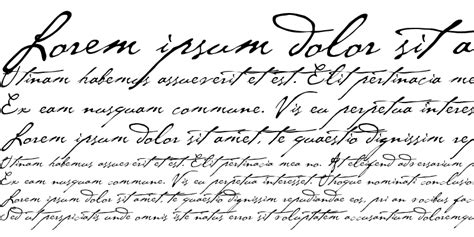 Lorem ipsum dolor sit a
Utinam habemus assueverit et est. Elit pertinacia me
Ex eam nusquam commune. Vis eu perpetua interes
Lorem ipsum dolor sit amet, te quaestio dignissim rep
Utinam habemus assueverit et est. Elit pertinacia mea no. At eleifend adversarium
Ex eam nusquam commune. Vis eu perpetua interesset. Utroque nominati conclusion
Lorem ipsum dolor sit amet, te quaestio dignissim repudiandae eos, pri an case
Sed ut perspiciatis unde omnis iste natus error sit voluptatem accusantium doloremqu